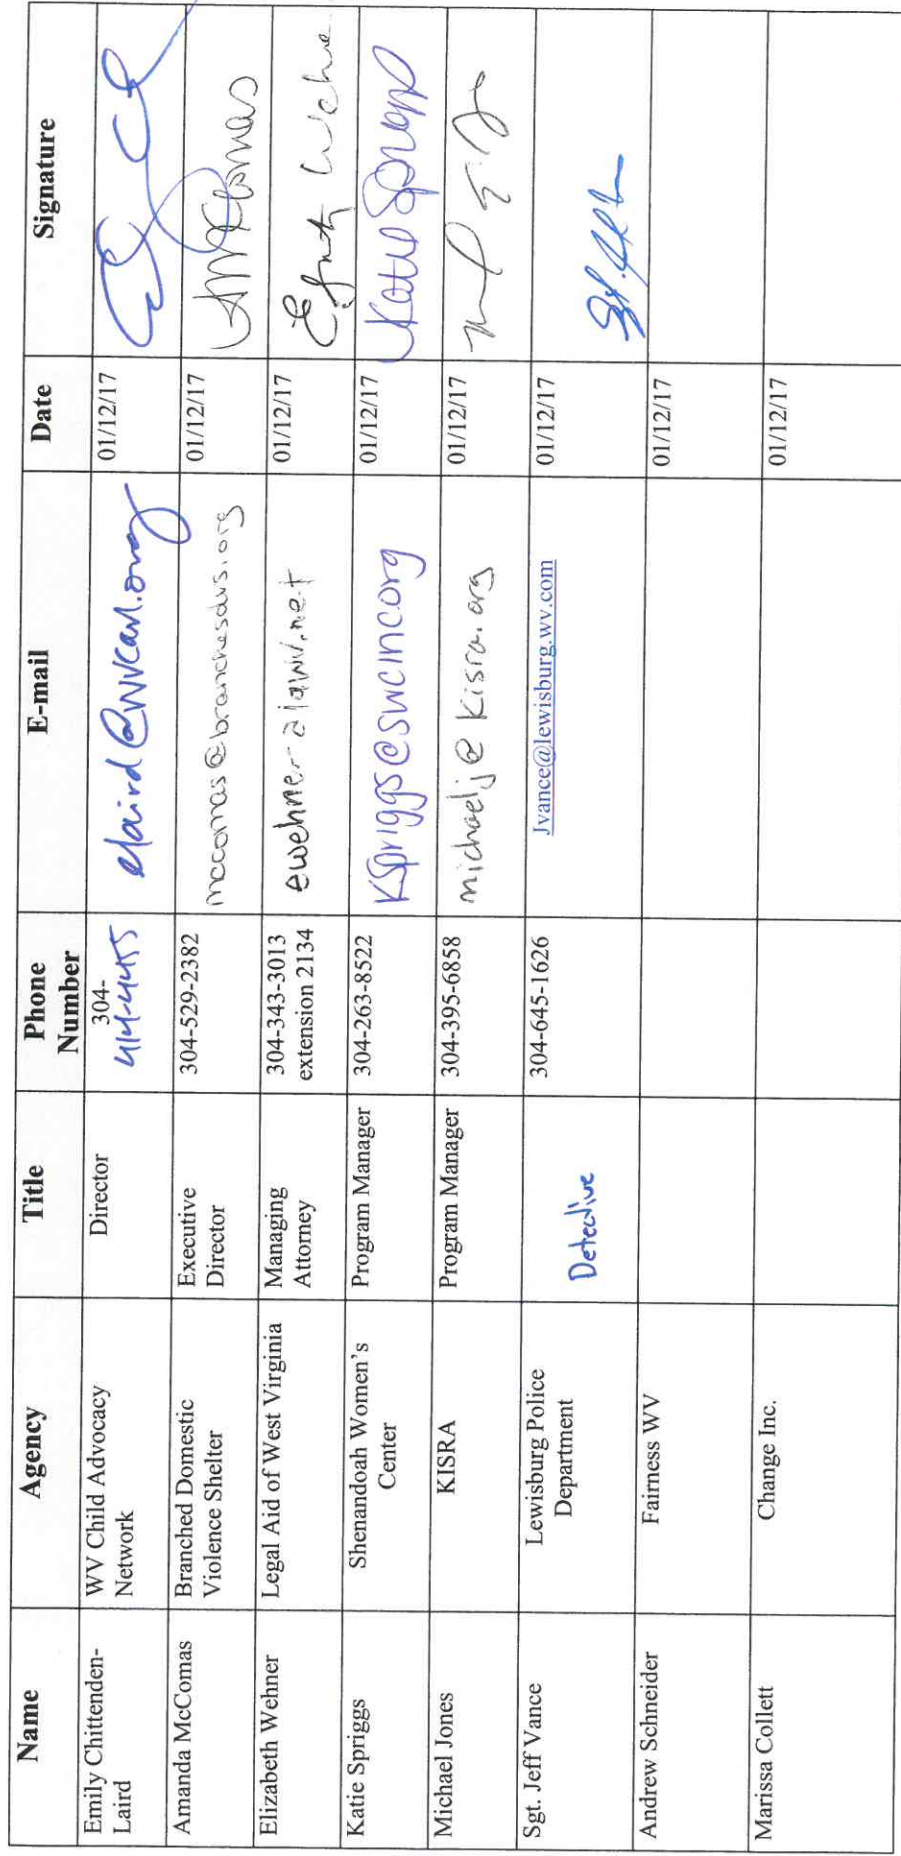 Name Agency Title Phone Number E-mail Date Signature
Emily Chittenden-
Laird
WV Child Advocacy
Network
Director
304-
414-4455
elaird@wvcan.org
01/12/17
Amanda McComas
Branched Domestic
Violence Shelter
Executive
Director
304-529-2382
mccomas@branchesdvs.org
01/12/17
AMcComas
Elizabeth Wehner
Legal Aid of West Virginia
Managing
Attorney
304-343-3013
extension 2134
ewehner@lawv.net
01/12/17
Katie Spriggs
Shenandoah Women's
Center
Program Manager
304-263-8522
KSpriggs@swcinc.org
01/12/17
Katie Spriggs
Michael Jones
KISRA
Program Manager
304-395-6858
michaelj@kisra.org
01/12/17
Sgt. Jeff Vance
Lewisburg Police
Department
Detective
304-645-1626
Jvance@lewisburg.wv.com
01/12/17
Andrew Schneider
Fairness WV
01/12/17
Marissa Collett
Change Inc.
01/12/17